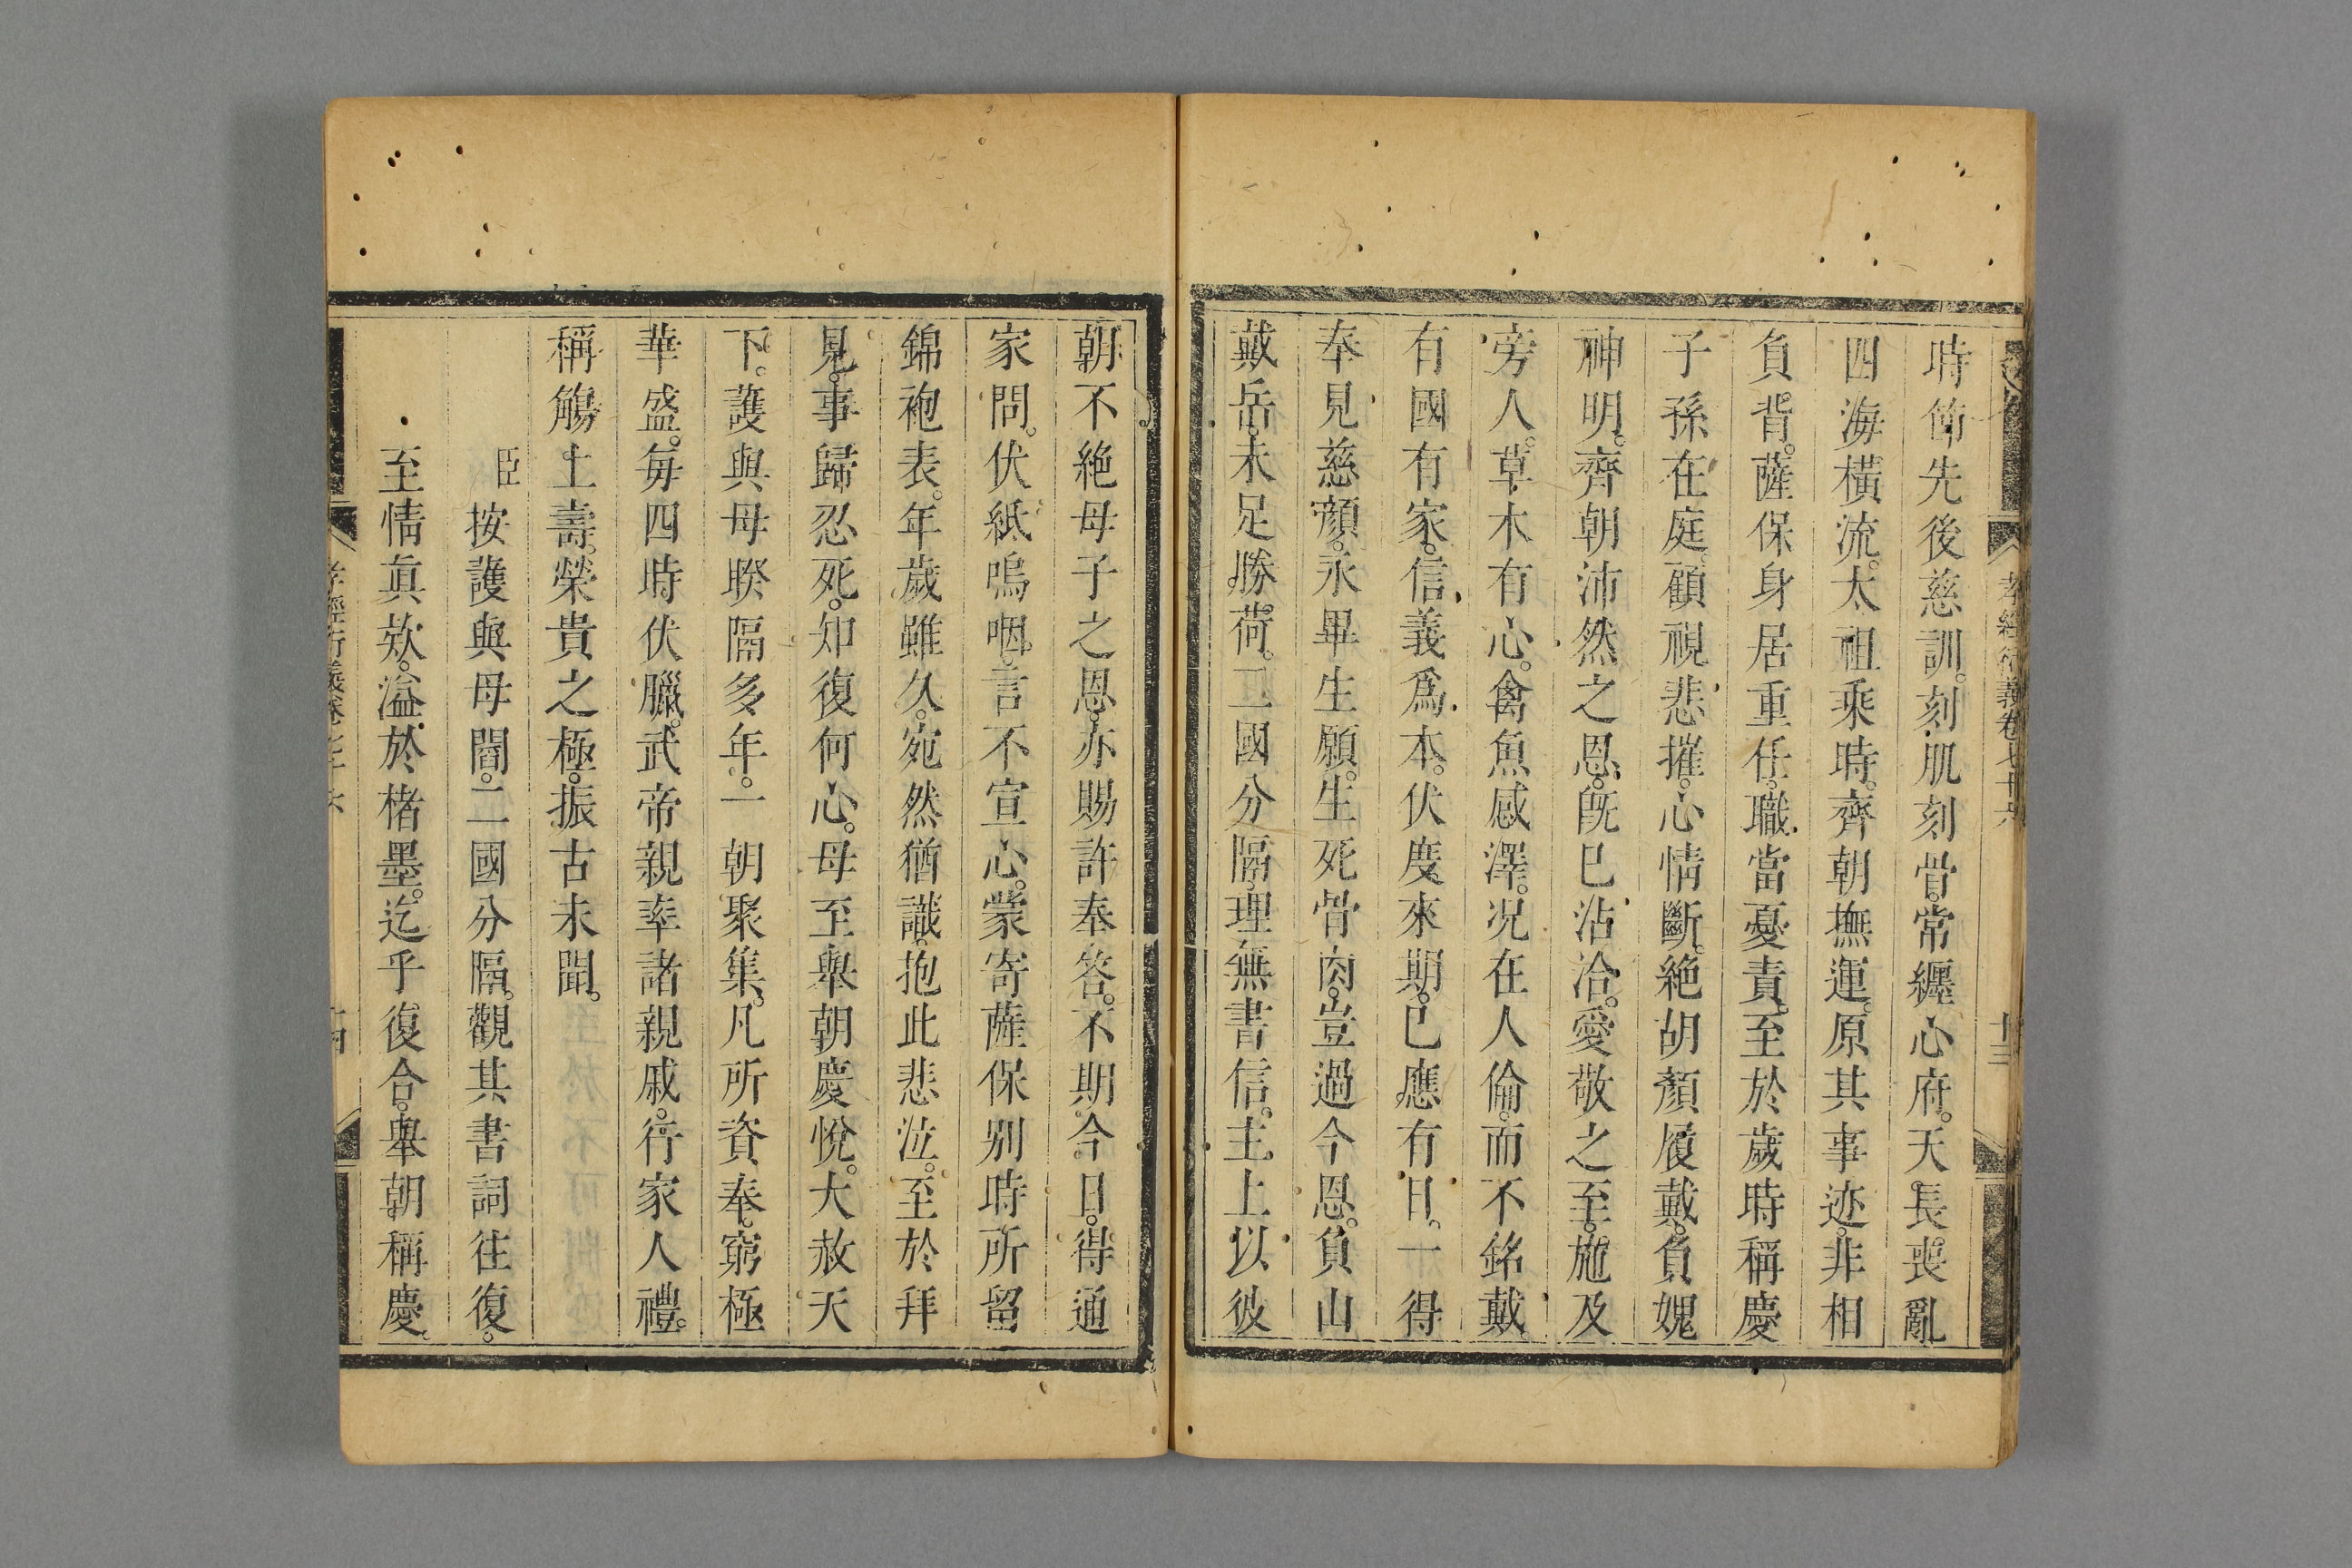 孝經衍義卷七十六
十三
時節先後慈訓。刻肌刻骨。常纒心府。天長喪亂
四海橫流。太祖乘時。齊朝撫運。原其事迹。非相
負背。薩保身居重任。職當憂責。至於歲時稱慶
子孫在庭。顧視悲摧。心情斷絕。胡顏履戴。負媿
神明。齊朝沛然之恩。旣已沾洽。愛敬之至。施及
旁人。草木有心。禽魚感澤。况在人倫。而不銘戴
有國有家。信義爲本。伏度來期。已應有日。一得
奉見慈顏。永畢生願。生死骨肉。豈過今恩。負山
戴岳。未足勝荷。二國分隔。理無書信。主上以彼
朝不絕母子之恩。亦賜許奉答。不期今日。得通
家問。伏紙嗚咽。言不宣心。蒙寄薩保别時所留
錦袍表。年歲雖久。宛然猶識。抱此悲泣。至於拜
見。事歸忍死。知復何心。母至舉朝慶悅。大赦天
下。護與母睽隔多年。一朝聚集。凡所資奉。窮極
華盛。每四時伏臘。武帝親率諸親戚。行家人禮。
稱觴上壽。榮貴之極。振古未聞。
臣按護與母閻。二國分隔。觀其書詞往復。
至情眞欵。溢於楮墨。迄乎復合。舉朝稱慶。